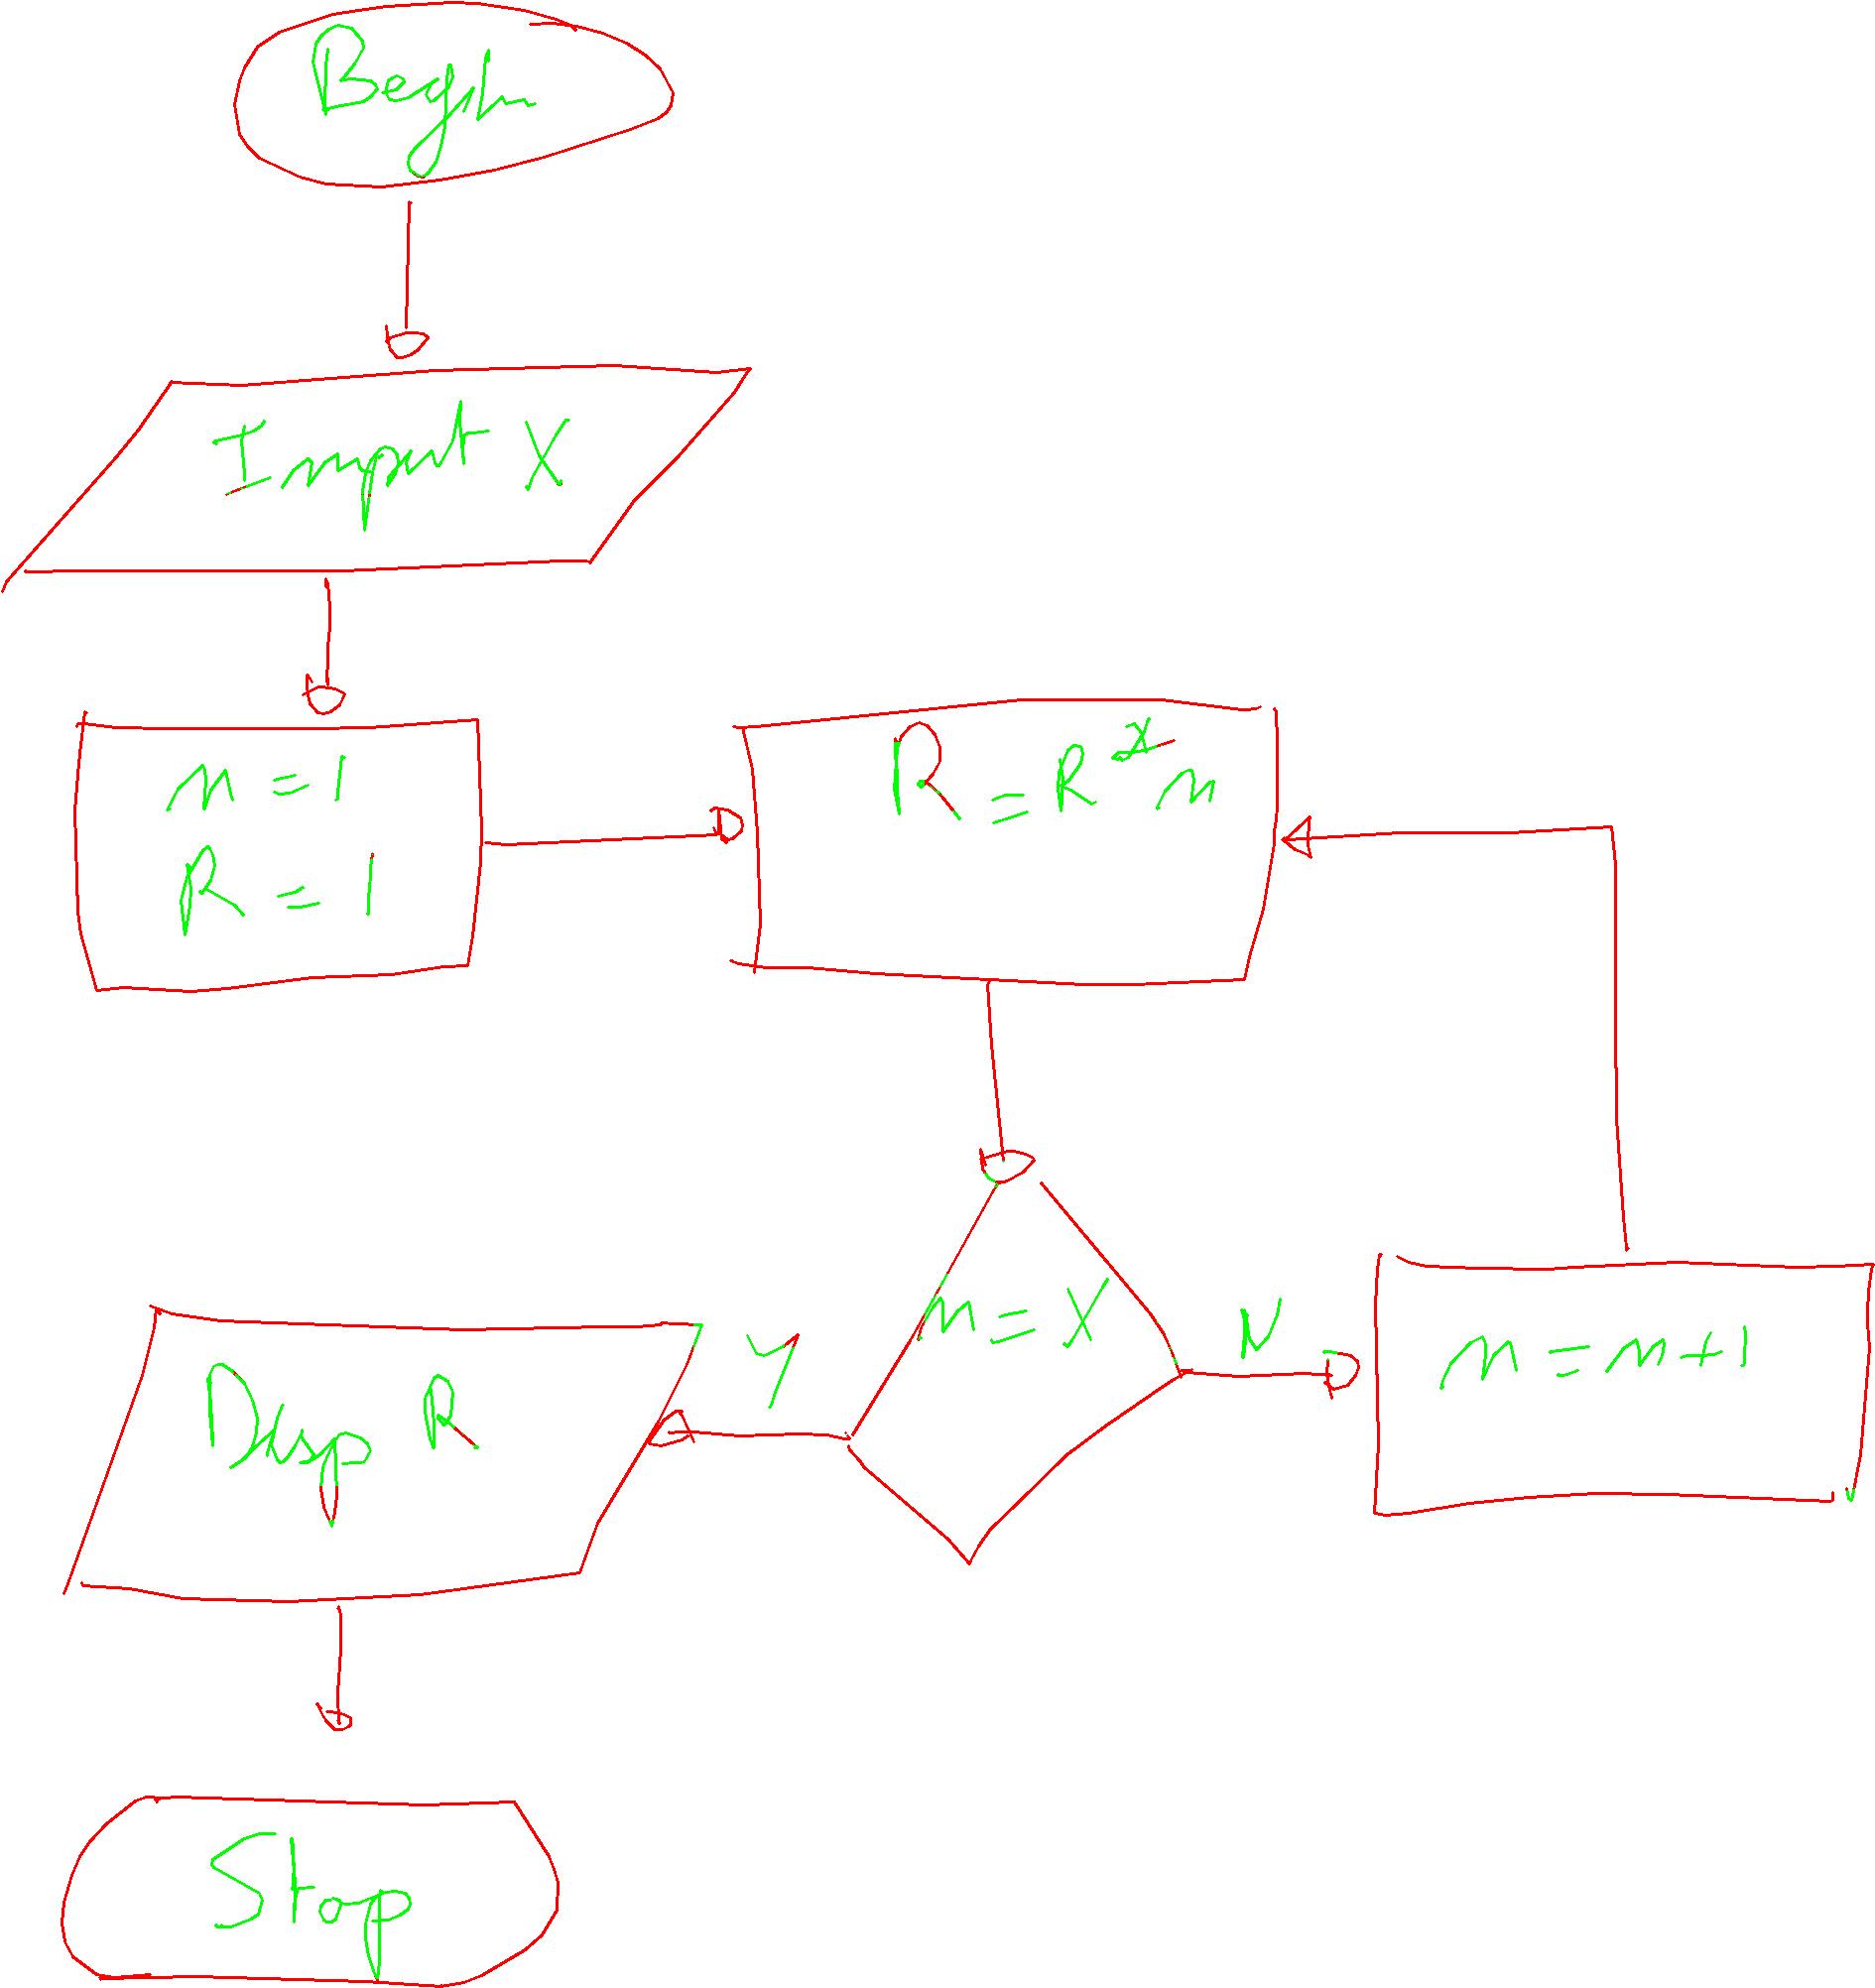 Begin
Input X
n = 1
R = 1
R = R * n
n = X
N
n = n + 1
Y
Disp R
Stop